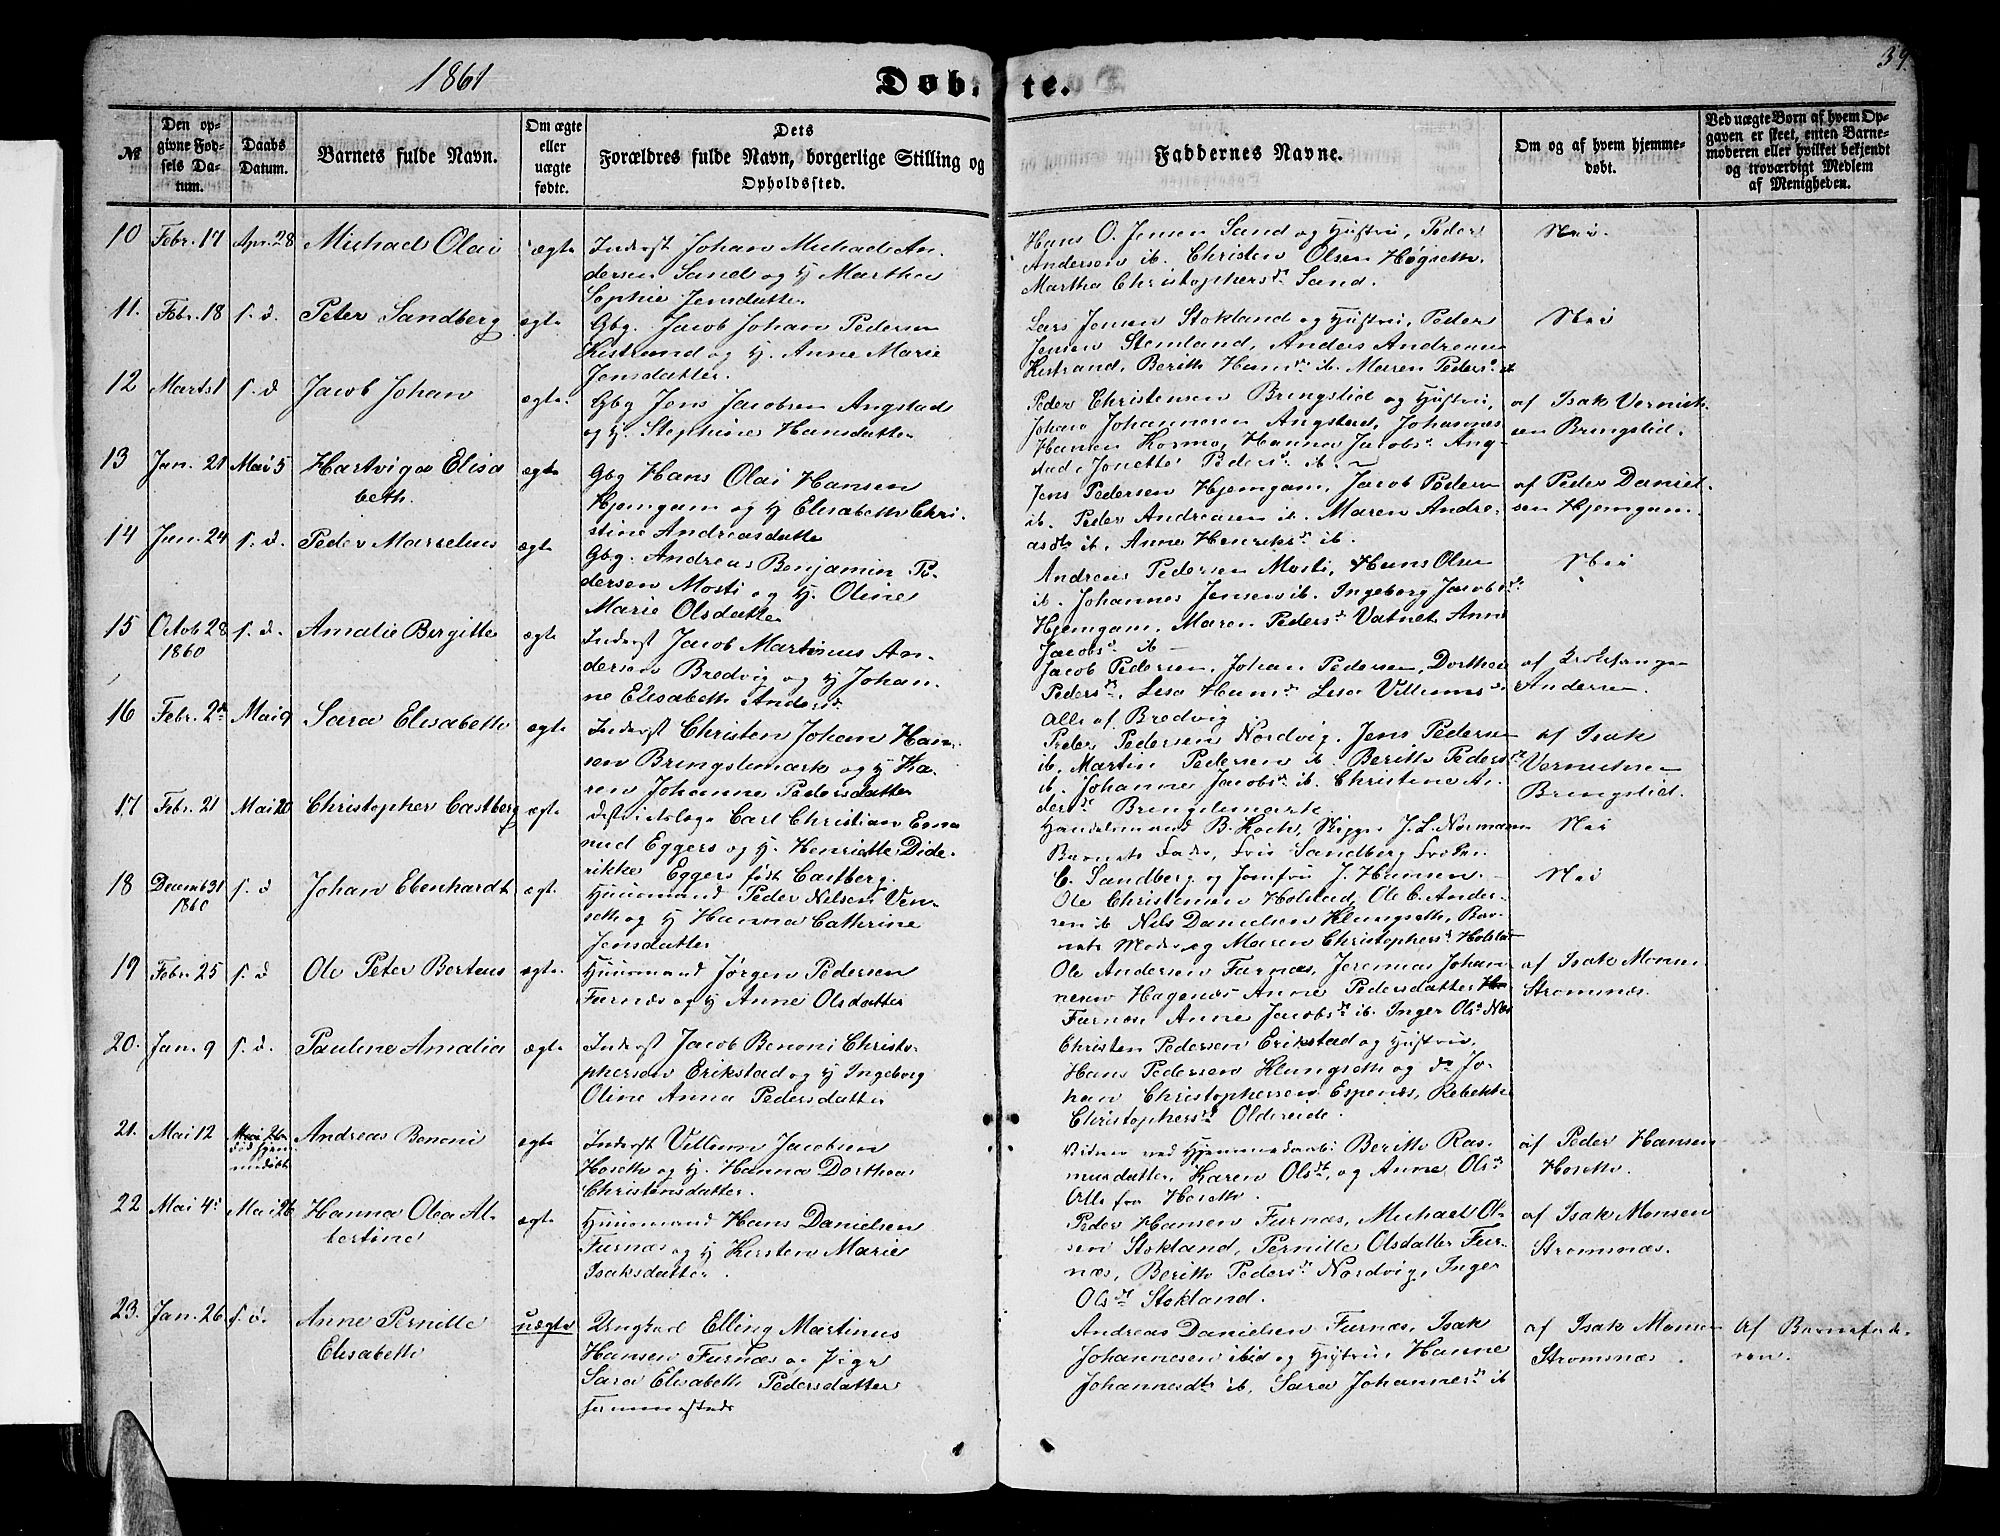 1861
Døbte.
39
№
Den opgivne Fødsels Datum.
Daabs Datum.
Barnets fulde Navn.
Om ægte eller uægte fødte.
Dets Forældres fulde Navn, borgerlige Stilling og Opholdssted.
Faddernes Navne.
Om og af hvem hjemmedøbt.
Ved uægte Børn af hvem Opgaven er skeet, enten Barnemoderen eller hvilket bekjendt og troværdigt Medlem af Menigheden.
10 Febr. 17 Apr. 28 Michael Olai ægte
Inderst Johan Michael An-
dersen Sand og H Martha
Sophie Jensdatter
Hans O. Jensen Sand og Hustru, Peder
Andersen ib. Christen Olsen Høgseth,
Martha Christophersdr Sand.
Nei
11. Febr. 18 s. d. Peter Sandberg ægte
Gbg. Jacob Johan Pedersen
Kistrand og H. Anne Marie
Jensdatter.
Lars Jensen Stokland og Hustru, Peder
Jensen Stemland, Anders Andreasen
Kistrand, Berith Hansdr ib. Maren Pedersdr ib
Nei
12 Marts 1 s. d Jacob Johan ægte.
Gbg Jens Jacobsen Angstad
og H. Stephine Hansdatter
Peder Christensen Bringslid og Hustru,
Johan Johannesen Angstad, Johannes
Hansen Kosmo, Hanna Jacobsdr Ang-
stad, Jonette Pedersdr ib.
af Isak Vernik-
sen Bringslid.
13 Jan. 21 Mai 5 Hartviga Elisa
beth. ægte
Gbg Hans Olai Hansen
Hjemgam og H Elisabeth Chri-
stine Andreasdatter
Jens Pedersen Hjemgam, Jacob Pedersen
ib. Peder Andreasen ib. Maren Andre-
asdtr ib, Anne Henriksdr ib.
af Peder Daniel-
sen Hjemgam.
14 Jan. 24 s. d. Peder Marselius ægte
Gbg. Andreas Benjamin Pe-
dersen Mosti og H. Oline
Marie Olsdatter
Andreas Pedersen Mosti, Hans Olsen
ib. Johannes Jensen ib. Ingeborg Jacobsdr
Hjemgam, Maren Pedersdr Vatnet, Anne
Jacobsdr ib
Nei
15 Octob 28
1860 s. d. Amalie Bergitte ægte
Inderst Jacob Martinus An-
dersen Bredvig og H Johan-
ne Elisabeth Andersdr
Jacob Pedersen, Johan Pedersen, Dorthea
Pedersdr, Lisa Hansdr Lisa Villumsdr
Alle af Bredvig
af
Andersen.
16 Febr. 2den Mai 9 Sara Elisabeth ægte
Inderst Christen Johan Han-
sen Bringslimark og H Ka-
ren Johanne Pedersdatter
Peder Pedersen Nordvig. Jens Pedersen
ib. Martin Pedersen ib. Berith Pedersdr
ib. Johanne Jacobsdr ib. Christine An-
dersdr Bringslimark.
af Isak
Verniksen
Bringslid.
17 Febr. 21 Mai 20 Christopher Castberg ægte
Districtslæge Carl Christian Ema
nuel Eggers og H. Henriette Dide-
rikke Eggers født Castberg.
Handelsmand B. Koch, Skipper J. L. Normann
Barnets Fader, Fru Sandberg Frøken
C. Sandberg og Jomfru J. Hansen.
Nei
18 Decemb 31
1860 s. d Johan Ebenhardt ægt.
Huusmand Peder Nilsen Ven-
seth og H Hanna Cathrine
Jensdatter
Ole Christensen Holstad, Ole C. Ander-
sen ib Nils Danielsen Klungseth, Bar-
nets Moder og Maren Christophersdr Holstad
Nei
19 Febr. 25 s. d Ole Peter Berteus ægte.
Huusmand Jørgen Pedersen
Furnæs og H Anne Olsdatter
Ole Andersen Furnæs, Jeremias Johan-
nesen Hagenæs Anne Pedersdatter
Furnæs Anne Jacobsdr ib. Inger Olsdr Næs
af Isak Monsen
Stromsnæs.
20. Jan. 9 s. d. Pauline Amalia ægte
Inderst Jacob Benoni Christo-
phersen Erikstad og H Ingeborg
Oline Anna Pedersdatter
Christen Pedersen Erikstad og Hustru,
Hans Pedersen Klungseth og do Jo-
han Christophersen Espenæs, Rebekka
Christophersdr Oldereide.
21. Mai 12 Mai 26 Andreas Benoni ægte
død hjem-
medøbt
Inderst Villum Jacobsen
Hoseth og H. Hanna Dorthea
Christensdatter.
Vidner ved Hjemmedaab: Berith Ras-
musdatter, Karen Olsdtr, og Anne Olsdr
Alle fra Hoseth.
af Peder Hansen
Hoseth.
22 Mai 4 Mai 26 Hanna Olea Al-
bertine ægte
Huusmand Hans Danielsen
Furnæs og H Kersten Marie
Isaksdatter.
Peder Hansen Furnæs, Michael Ol-
sen Stokland, Pernille Olsdatter Fur-
næs, Berith Pedersdr Nordvig, Inger
Olsdr Stokland.
af Isak Monsen
Stromsnæs.
23. Jan. 26 s. d. Anne Pernille
Elisabeth uægte
Ungkarl Elling Martinus
Hansen Furnæs og Pige
Sara Elisabeth Pedersdatter
sammesteds
Andreas Danielsen Furnæs, Isak
Johannesen ibid og Hustru Hanne
Johannesdtr ib, Sara Johannesdr ib
af Isak Monsen
Stromsnæs.
Af Barnefade-
ren.